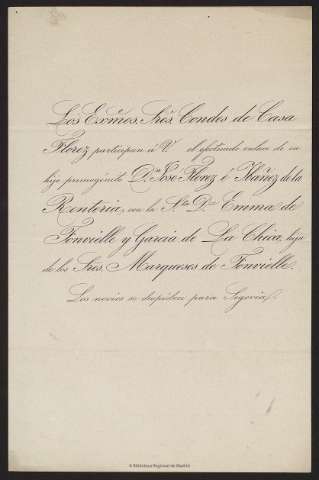 Los Exmos. Sres. Condes de Casa
Florez participan á V. el efectuado enlace de su
hijo primogénito Dn. José Florez é Ibáñez de la
Rentería, con la Sta. Da. Emma de
Fonvielle y García de La Chica, hija
de los Sres. Marqueses de Fonvielle.
Los novios se despiden para Segovia.
© Biblioteca Regional de Madrid